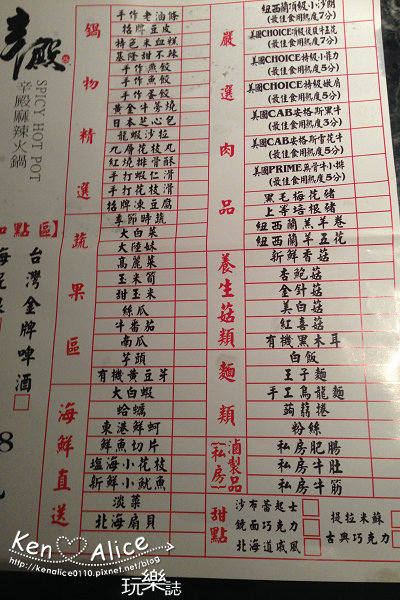 辛殿
SPICY HOT POT
辛殿麻辣火鍋
加點區】
台灣金牌啤酒
鍋物精選
手作老油條
招牌豆皮
特色米血糕
基隆甜不辣
手作燕餃
手作魚餃
手作蛋餃
黃金牛蒡燒
日本芝心包
龍蝦沙拉
九層花枝丸
紅燒排骨酥
手打蝦仁滑
手打花枝滑
招牌凍豆腐
蔬果區
季節時蔬
大白菜
大陸妹
高麗菜
玉米筍
甜玉米
絲瓜
牛番茄
南瓜
芋頭
有機黃豆芽
海鮮直送
大白蝦
蛤蠣
東港鮮蚵
鮮魚切片
塩海小花枝
新鮮小魷魚
淡菜
北海扇貝
嚴選肉品
紐西蘭頂級小沙朗
(最佳食用熟度7分)
美國CHOICE頂級後腹牛五花
(最佳食用熟度7分)
美國CHOICE特級小菲力
(最佳食用熟度5分)
美國CHOICE特級嫩肩
(最佳食用熟度5分)
美國CAB安格斯黑牛
(最佳食用熟度3分)
美國CAB安格斯雪花牛
(最佳食用熟度5分)
美國PRIME無骨牛小排
(最佳食用熟度3分)
黑毛梅花豬
上等培根豬
紐西蘭羔羊卷
紐西蘭羊五花
養生菇類
新鮮香菇
杏鮑菇
金針菇
美白菇
紅喜菇
有機黑木耳
麵類
白飯
王子麵
手工烏龍麵
蒟蒻捲
粉絲
滷製品
(私房)
私房肥腸
私房牛肚
私房牛筋
甜點
沙布蕾起士
鏡面巧克力
北海道戚風
提拉米蘇
古典巧克力
Ken♡Alice
http://kenalice0110.pixnet.net/blog
玩樂誌